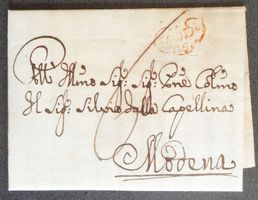 All' Illmo Sigr: Sigr: Pne Colmo
Il Sigr: Silvio dalla Capellina
Modena